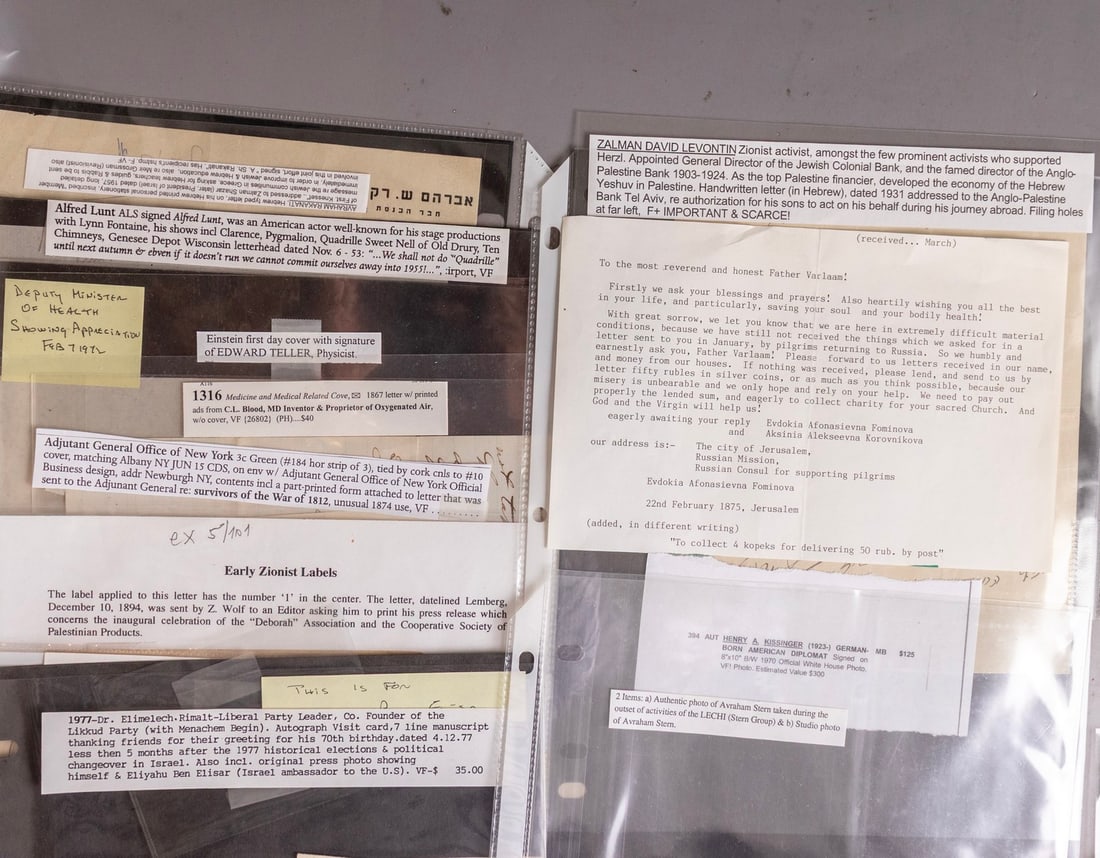 AVRAHAM RAKANATI, Hebrew typed letter, on his Hebrew printed personal stationary, inscribed "Member
of First Knesset", addressed to Zalman Shazar (later President of Israel) dated 1957, long detailed
message re situation in the Jewish communities in Greece, asking for Hebrew teachers, guides & Rabbis to be sent
immediately, in order to improve Jewish & Hebrew education, also Meir Grossman (Revisionist) also
involved in this joint effort, signed " A. Sh. Rakanati", Has recipient's hstmp. F- VF
אברהם ש. רק
חבר הכנסת
Alfred Lunt ALS signed Alfred Lunt, was an American actor well-known for his stage productions
with Lynn Fontaine, his shows incl Clarence, Pygmalion, Quadrille Sweet Nell of Old Drury, Ten
Chimneys, Genesee Depot Wisconsin letterhead dated Nov. 6 - 53: "...We shall not do "Quadrille"
until next autumn & eben if it doesn't run we cannot commit ourselves away into 1955!...", :irport, VF
DEPUTY MINISTER
OF HEALTH
SHOWING APPRECIATION
FEB 7 1972
Einstein first day cover with signature
of EDWARD TELLER, Physicist.
1316 Medicine and Medical Related Cove, ✉ 1867 letter w/ printed
ads from C.L. Blood, MD Inventor & Proprietor of Oxygenated Air,
w/o cover, VF {26802} (PH)....$40
Adjutant General Office of New York 3c Green (#184 hor strip of 3), tied by cork cnls to #10
cover, matching Albany NY JUN 15 CDS, on env w/ Adjutant Office of New York Official
Business design, addr Newburgh NY, contents incl a part-printed form attached to letter that was
sent to the Adjunant General re: survivors of the War of 1812, unusual 1874 use, VF .........
ex 5/101
Early Zionist Labels
The label applied to this letter has the number '1' in the center. The letter, datelined Lemberg,
December 10, 1894, was sent by Z. Wolf to an Editor asking him to print his press release which
concerns the inaugural celebration of the "Deborah" Association and the Cooperative Society of
Palestinian Products.
THIS IS FOR
1977-Dr. Elimelech-Rimalt-Liberal Party Leader, Co. Founder of the
Likkud Party (with Menachem Begin). Autograph Visit card,7 line manuscript
thanking friends for their greeting for his 70th birthday.dated 4.12.77
less then 5 months after the 1977 historical elections & political
changeover in Israel. Also incl. original press photo showing
himself & Eliyahu Ben Elisar (Israel ambassador to the U.S). VF-$ 35.00
ZALMAN DAVID LEVONTIN Zionist activist, amongst the few prominent activists who supported
Herzl. Appointed General Director of the Jewish Colonial Bank, and the famed director of the Anglo-
Palestine Bank 1903-1924. As the top Palestine financier, developed the economy of the Hebrew
Yeshuv in Palestine. Handwritten letter (in Hebrew), dated 1931 addressed to the Anglo-Palestine
Bank Tel Aviv, re authorization for his sons to act on his behalf during his journey abroad. Filing holes
at far left, F+ IMPORTANT & SCARCE!
(received... March)
To the most reverend and honest Father Varlaam!
Firstly we ask your blessings and prayers! Also heartily wishing you all the best
in your life, and particularly, saving your soul and your bodily health!
With great sorrow, we let you know that we are here in extremely difficult material
conditions, because we have still not received the things which we asked for in a
letter sent to you in January, by pilgrims returning to Russia. So we humbly and
earnestly ask you, Father Varlaam! Please forward to us letters received in our name,
and money from our houses. If nothing was received, please lend, and send to us by
letter fifty rubles in silver coins, or as much as you think possible, because our
misery is unbearable and we only hope and rely on your help. We need to pay out
properly the lended sum, and eagerly to collect charity for your sacred Church. And
God and the Virgin will help us!
eagerly awaiting your reply Evdokia Afonasievna Fominova
and Aksinia Alekseevna Korovnikova
our address is:- The city of Jerusalem,
Russian Mission,
Russian Consul for supporting pilgrims
Evdokia Afonasievna Fominova
22nd February 1875, Jerusalem
(added, in different writing)
"To collect 4 kopeks for delivering 50 rub. by post"
394 AUT HENRY A. KISSINGER (1923-) GERMAN- MB $125
BORN AMERICAN DIPLOMAT Signed on
8"x10" B/W 1970 Official White House Photo.
VF! Photo. Estimated Value $300
2 Items: a) Authentic photo of Avraham Stern taken during the
outset of activities of the LECHI (Stern Group) & b) Studio photo
of Avraham Stern.